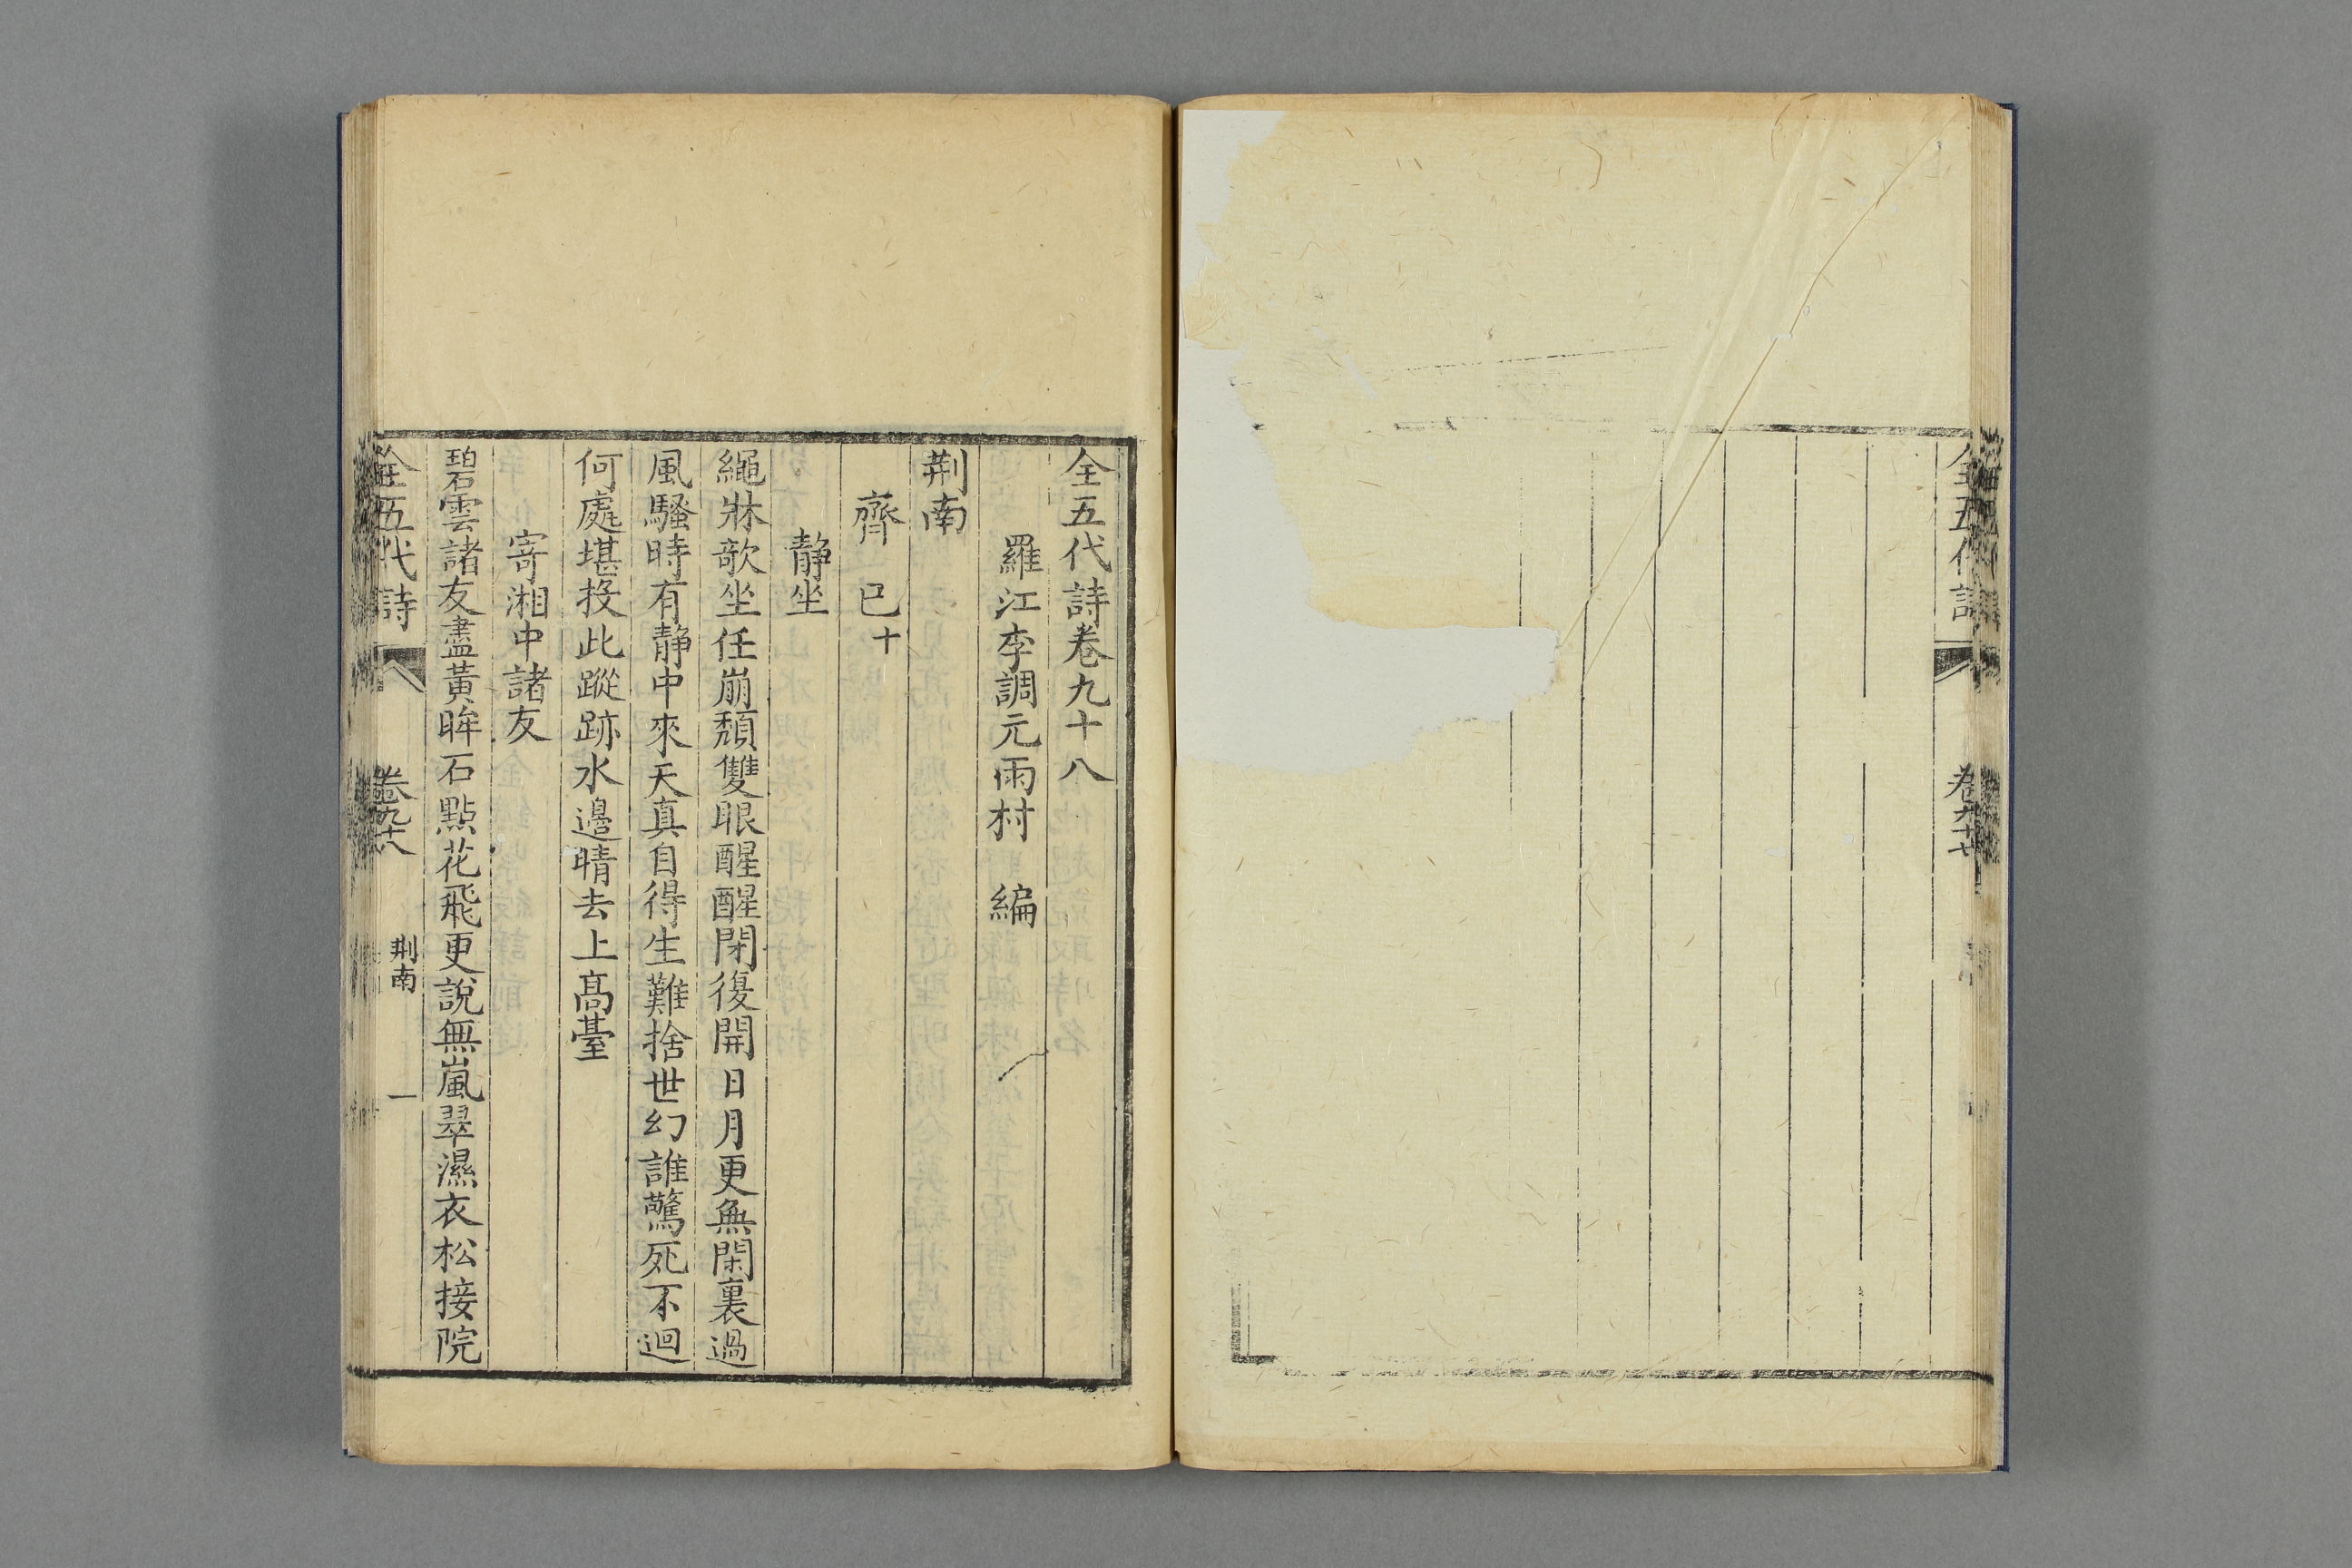 全五代詩
卷九十七
全五代詩卷九十八
羅江李調元雨村　編
荆南
齊　已十
靜坐
繩牀欹坐任崩頹雙眼醒醒閉復開日月更無閑裏過
風騷時有靜中來天真自得生難捨世幻誰驚死不迴
何處堪投此蹤跡水邊晴去上高臺
寄湘中諸友
碧雲諸友盡黃眸石點花飛更說無嵐翠濕衣松接院
全五代詩
卷九十八
荆南
一